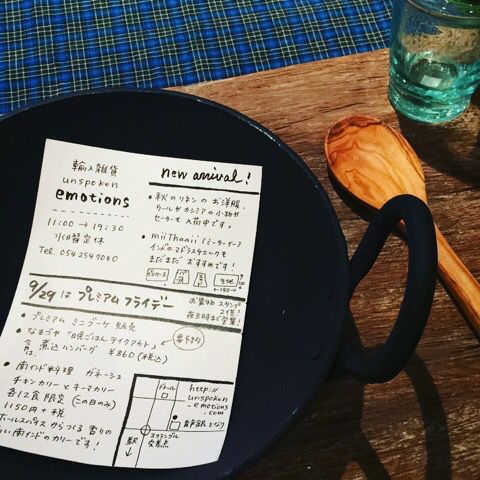 輸入雑貨
unspoken
emotions
11:00 → 19:30
水曜定休
Tel. 054 254 9040
new arrival!
• 秋のリネンの お洋服、
ウールや カシミアの 小物や
セーターも 入荷中です。
• miiThaaii (ミーターイー)
インドのマドラスチェックも
まだまだ おすすめです!
9/29は プレミアムフライデー
お買物 スタンプ
2倍!
夜8時まで営業!
• プレミアム ミニブーケ 販売
• なまづや 「日晩ごはん テイクアウト」
煮込ハンバーグ ¥860 (税込)
要予約
• 南インド料理 ガネーシュ
チキンカリーと キーマカリー
各12食限定 (この日のみ)
1150円+税
ホールスパイス からつくる 香りの
南インドのカリーです!
http://
unspoken
-emotions
.com
スクランブル
交差点
駅
静銀となり